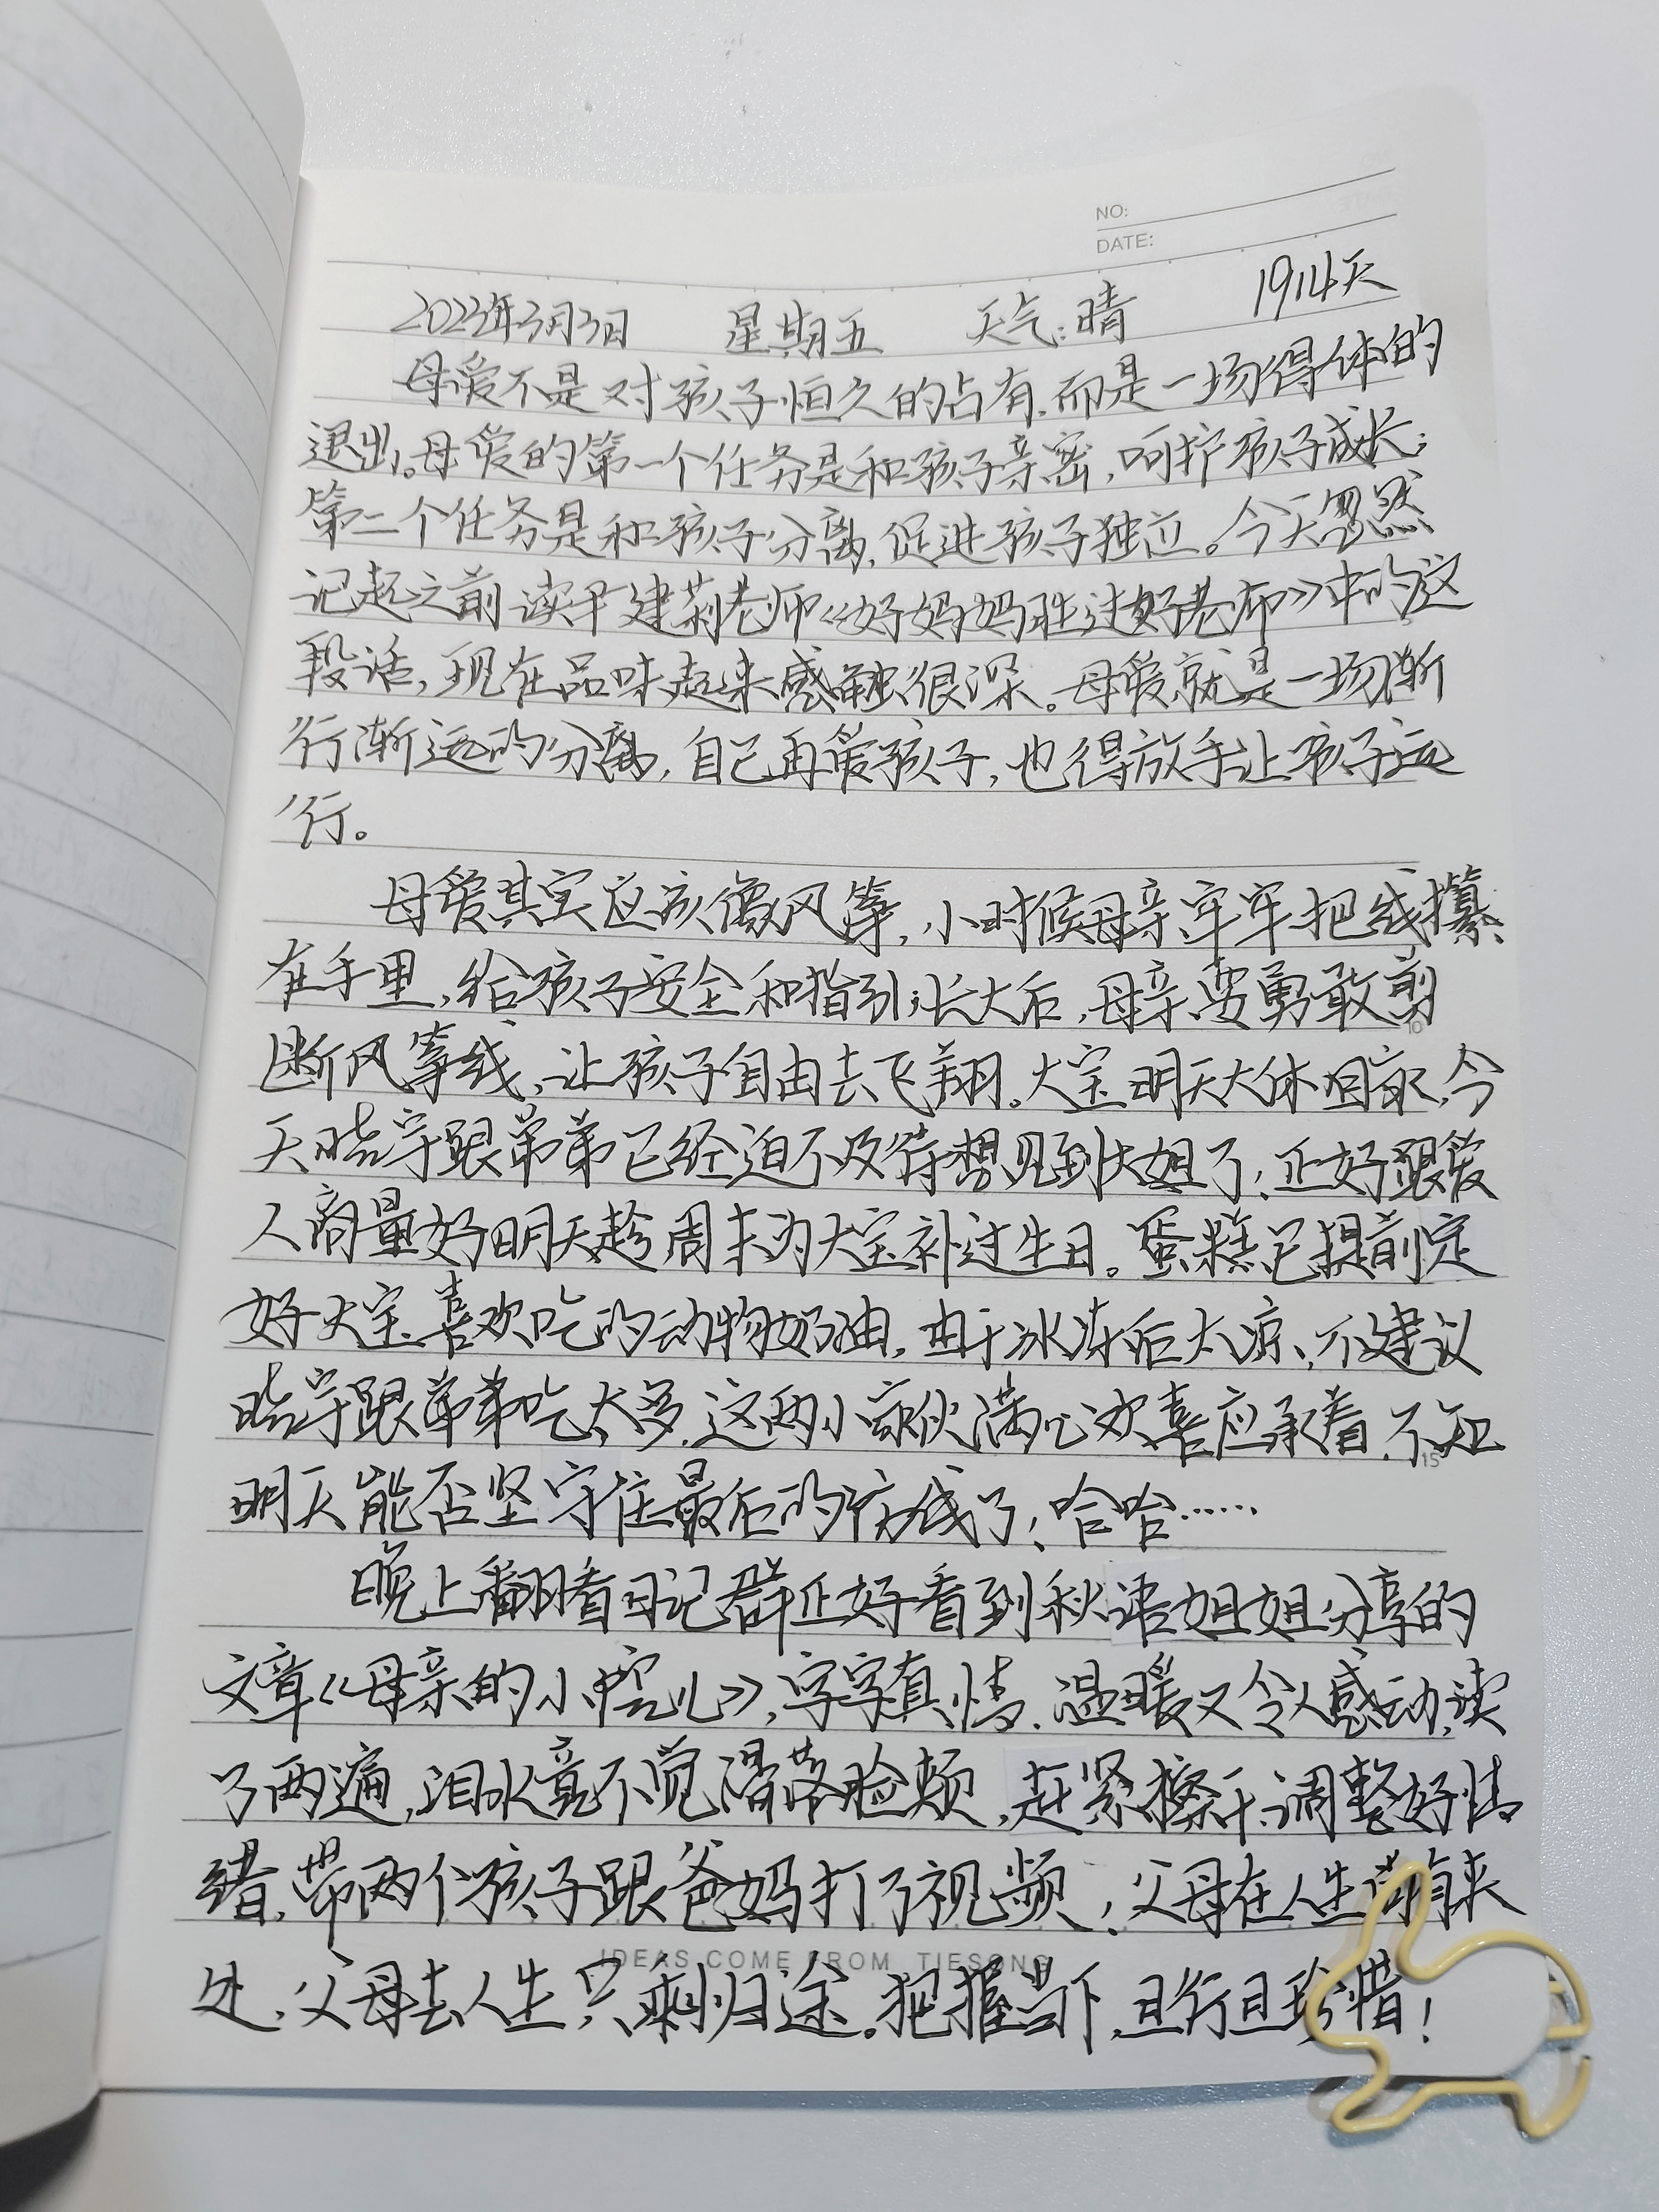 NO:
DATE:
2023年3月3日 星期五 天气:晴 1914天
母爱不是对孩子恒久的占有,而是一场得体的
退出。母爱的第一个任务是和孩子亲密,呵护孩子成长;
第二个任务是和孩子分离,促进孩子独立。今天忽然
记起之前读尹建莉老师《好妈妈胜过好老师》中的这
段话,现在品味起来感触很深。母爱就是一场渐
行渐远的分离,自己再爱孩子,也得放手让孩子远
行。
母爱其实应该像风筝,小时候母亲牢牢把线攥
在手里,给孩子安全和指引;长大后,母亲要勇敢剪
断风筝线,让孩子自由去飞翔。大宝明天大休回家,今
天晓宇跟弟弟已经迫不及待想见到大姐了;正好跟爱
人商量好明天趁周末为大宝补过生日。蛋糕已提前定
好大宝喜欢吃的动物奶油,由于冰冻后太凉,不建议
晓宇跟弟弟吃太多,这两小家伙满心欢喜应承着,不知
明天能否坚守住最后的防线了!哈哈……
晚上翻看日记群正好看到秋语姐姐分享的
文章《母亲的小心儿》,字字真情,温暖又令人感动,读
了两遍,泪水竟不觉滑落脸颊,赶紧擦干,调整好情
绪,带两个孩子跟爸妈打了视频!父母在人生尚有来
处,父母去人生只剩归途。把握当下,且行且珍惜!
IDEAS COME FROM TIESONG
10
15